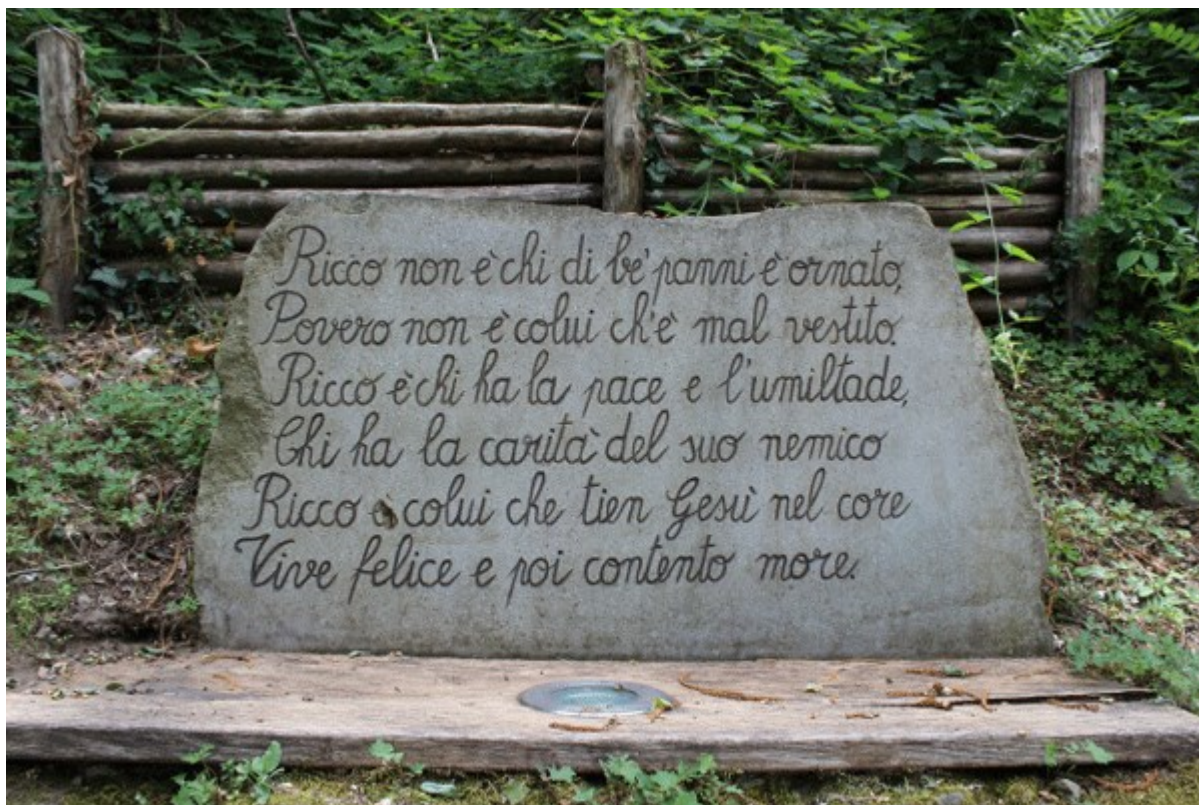 Ricco non è chi di be' panni è ornato,
Povero non è colui ch'è mal vestito.
Ricco è chi ha la pace e l'umiltade,
Chi ha la carità del suo nemico
Ricco è colui che tien Gesù nel core
Vive felice e poi contento more.